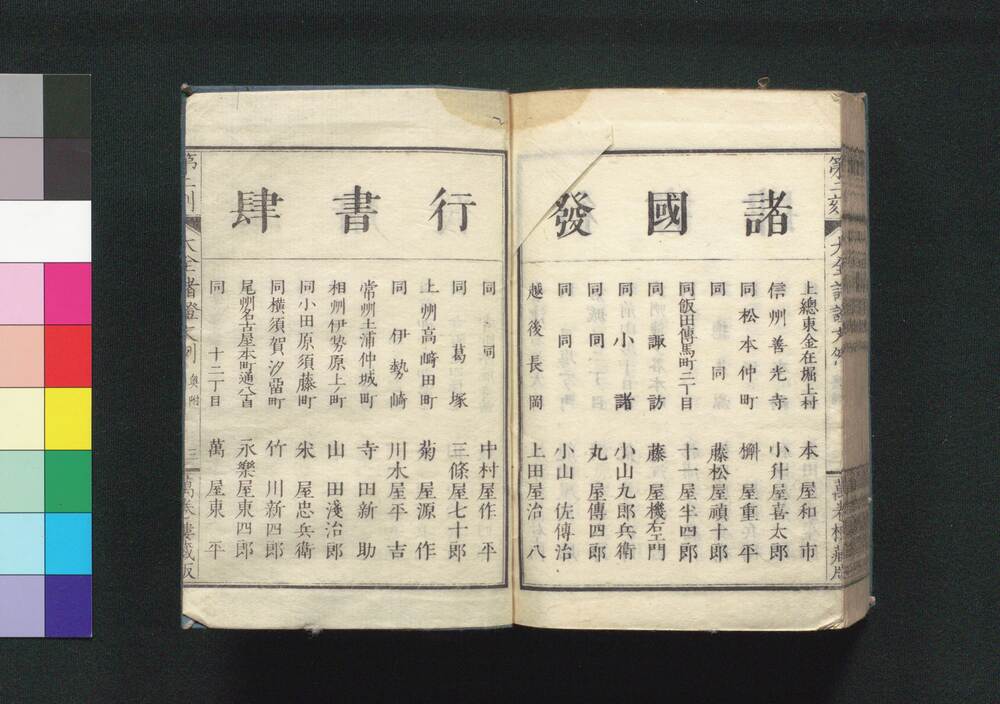 諸國發
上總東金在堀上村 本屋和市
信州善光寺 小升屋喜太郎
同松本仲町 檞屋重平
同 同 藤松屋禎十郎
同飯田傳馬町二丁目 十一屋半四郎
同諏訪 藤屋機右エ門
同小諸 小山九郎兵衞
同同 丸屋傳四郎
同同 小山佐傳治
越後長岡 上田屋治八
行書肆
同同 中村屋作平
同葛塚 三條屋七十郎
上州高﨑田町 菊屋源作
同伊勢崎 川木屋平吉
常州土浦仲城町 寺田新助
相州伊勢原上町 山田淺治郎
同小田原須藤町 米屋忠兵衞
同横須賀汐留町 竹川新四郎
尾州名古屋本町通八丁目 永樂屋東四郎
同十二丁目 萬屋東平